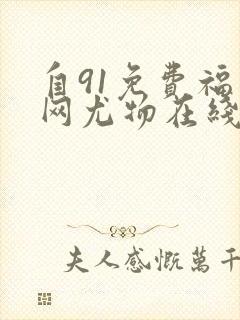 自91免費福
网尤物在綫
夫人感慨萬千